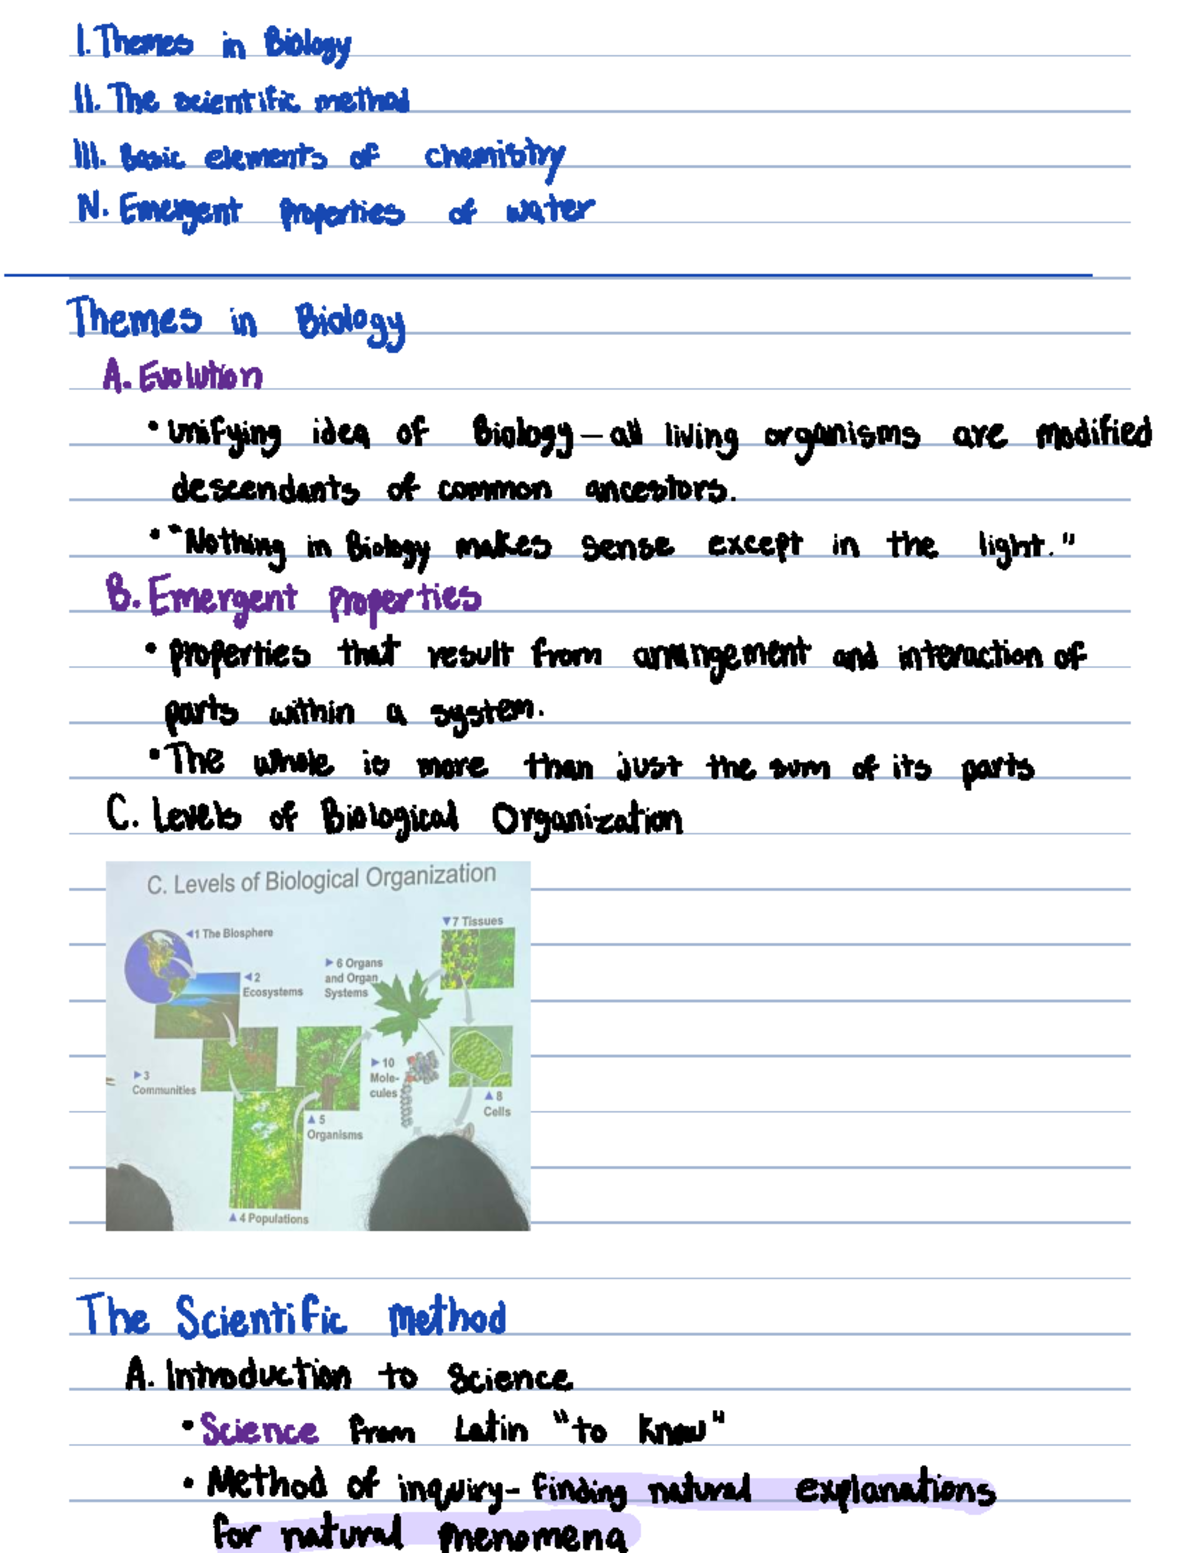 I. Themes in Biology
II. The scientific method
III. Basic elements of chemistry
IV. Emergent properties of water
Themes in Biology
A. Evolution
• unifying idea of Biology – all living organisms are modified
descendants of common ancestors.
• "Nothing in Biology makes sense except in the light."
B. Emergent properties
• properties that result from arrangement and interaction of
parts within a system.
• The whole is more than just the sum of its parts
C. Levels of Biological Organization
C. Levels of Biological Organization
◀1 The Biosphere
◀2
Ecosystems
▶3
Communities
▲4 Populations
▲5
Organisms
▶6 Organs
and Organ
Systems
▼7 Tissues
▲8
Cells
▶10
Mole-
cules
The Scientific Method
A. Introduction to Science
• Science from Latin "to know"
• Method of inquiry- finding natural explanations
for natural phenomena